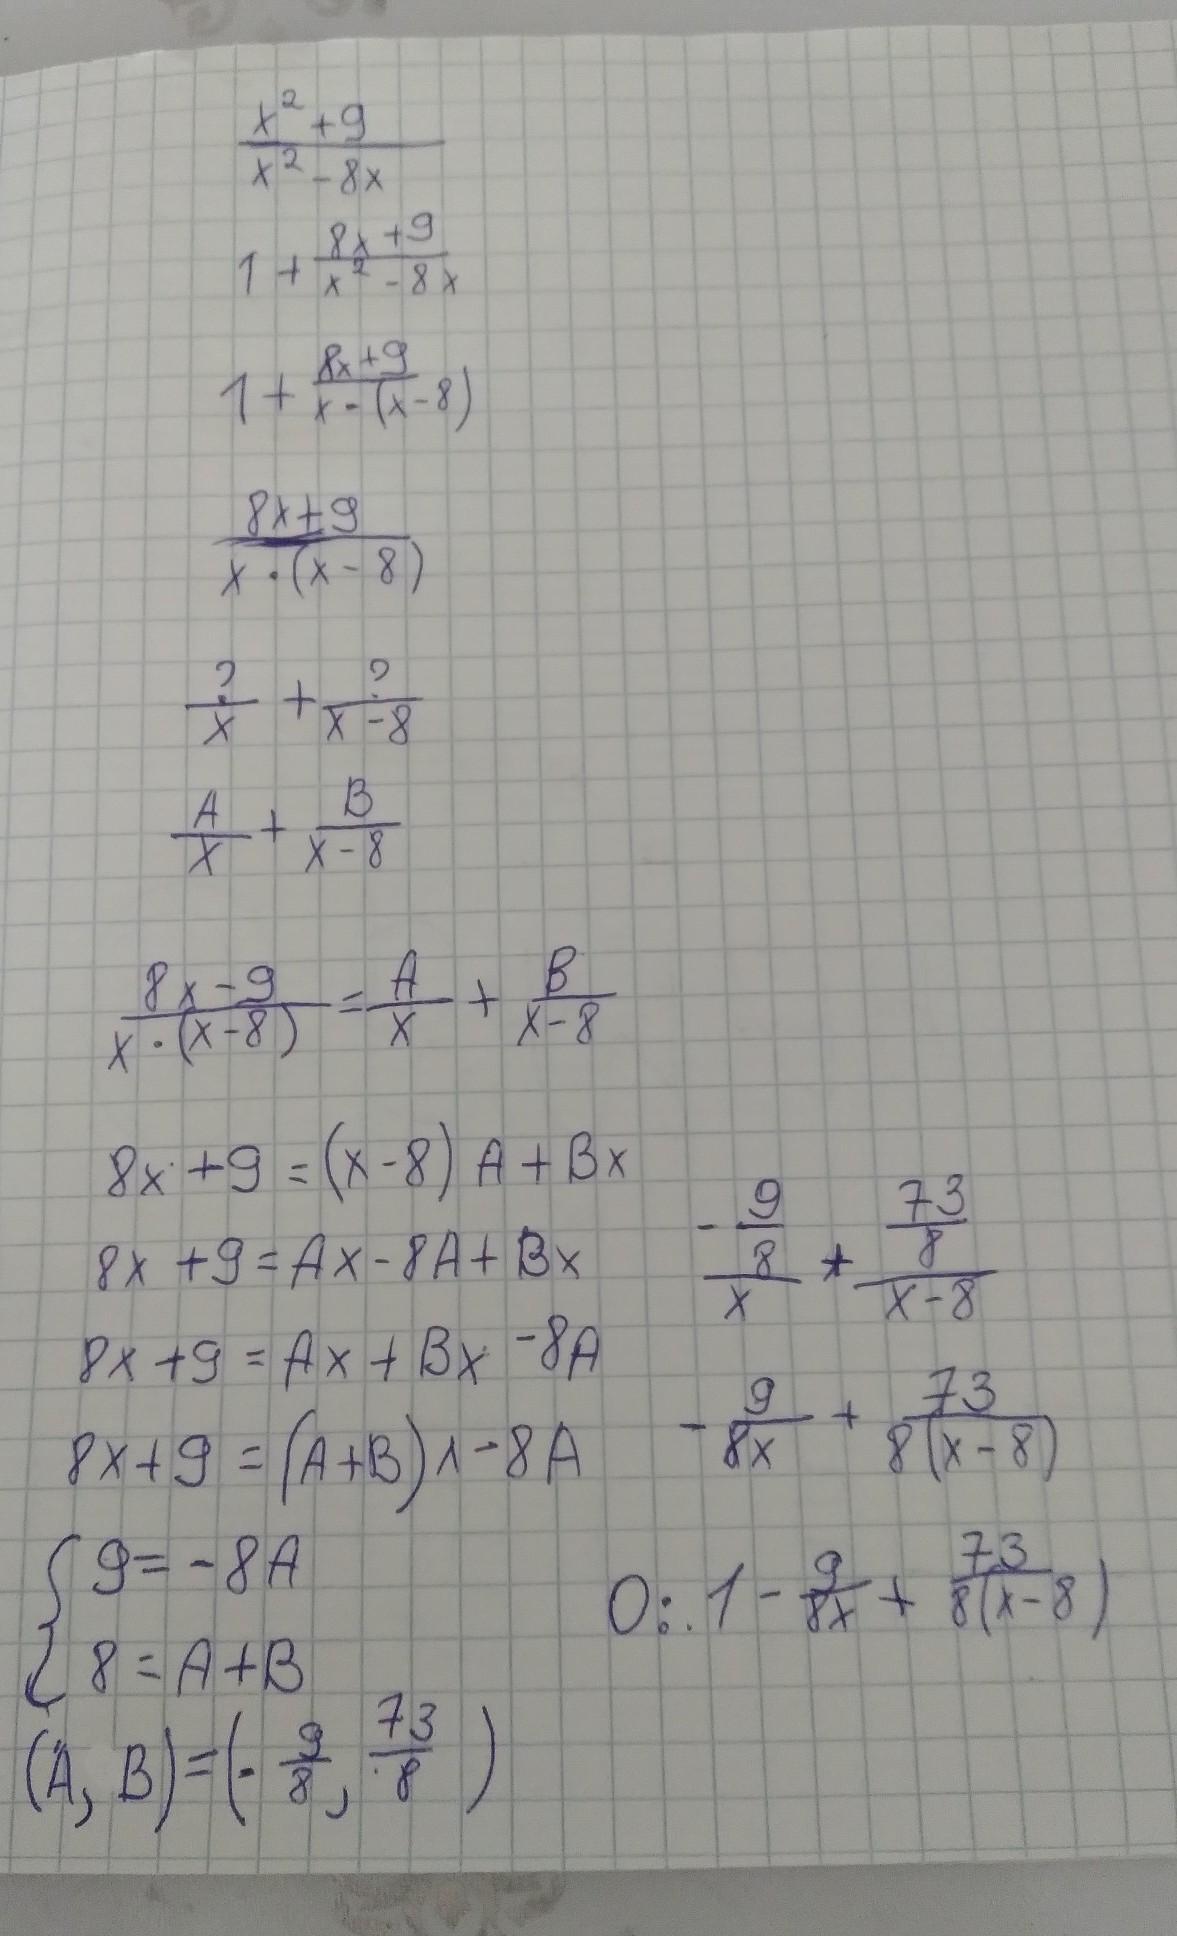 x² + 9 / x² - 8x
1 + 8x + 9 / x² - 8x
1 + 8x + 9 / x - (x - 8)
8x + 9 / x · (x - 8)
? / x + ? / x - 8
A / x + B / x - 8
8x - 9 / x · (x - 8) = A / x + B / x - 8
8x + 9 = (x - 8) A + Bx
8x + 9 = Ax - 8A + Bx
8x + 9 = Ax + Bx - 8A
8x + 9 = (A + B) x - 8A
{ 9 = - 8A
8 = A + B
(A, B) = (- 9/8, 73/8)
- 9/8 / x + 73/8 / x - 8
- 9 / 8x + 73 / 8(x - 8)
O: 1 - 9 / 8x + 73 / 8(x - 8)